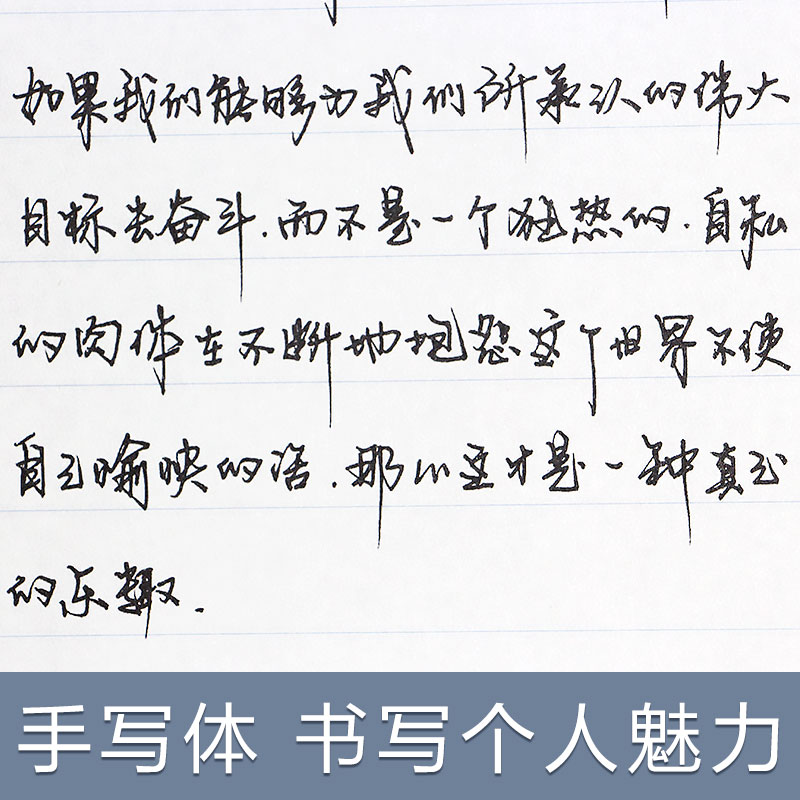 如果我们能够为我们所承认的伟大
目标去奋斗.而不是一个狂热的.自私
的肉体在不断地抱怨这个世界不使
自己愉快的话.那么这才是一种真正
的乐趣.
手写体 书写个人魅力